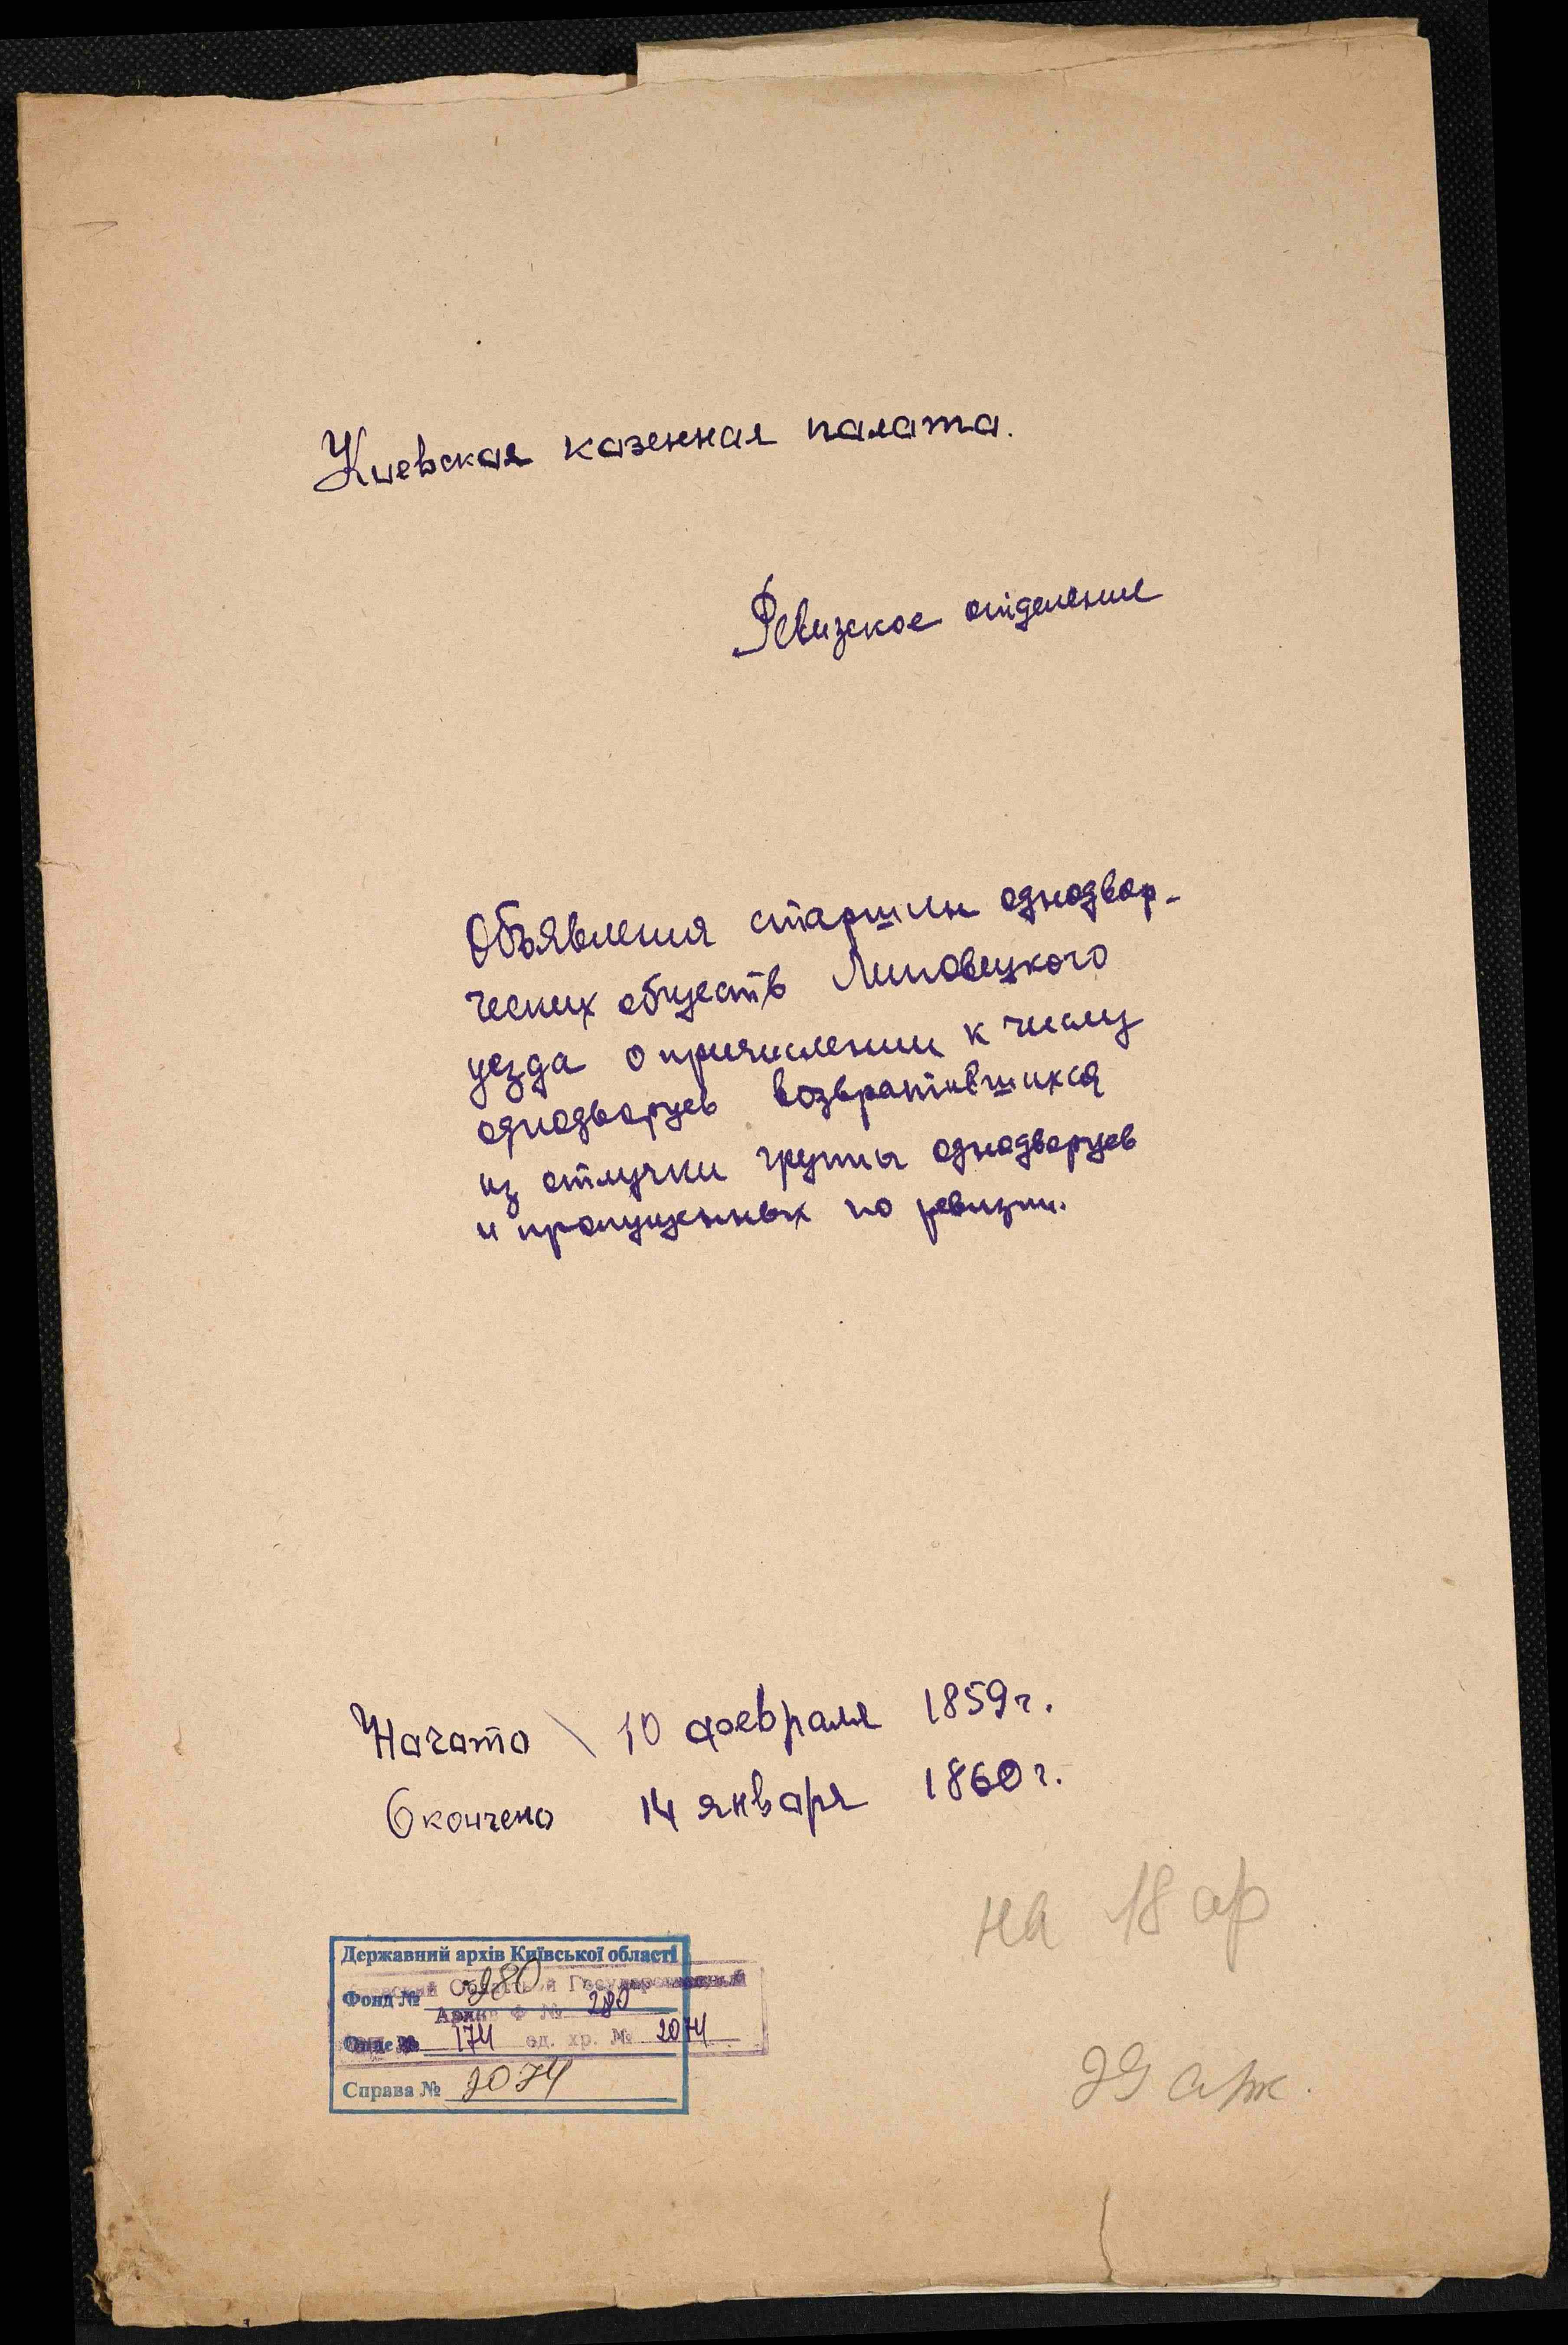 Киевская казенная палата.
Ревизское отделение
Объявления старшин однодвор-
ческих обществ Липовецкого
уезда о причислении к числу
однодворцев возвратившихся
из отлучки группы однодворцев
и пропущенных по ревизии.
Начато \ 10 февраля 1859 г.
Окончено 14 января 1860 г.
на 18 ар
29 арк.
Державний архів Київської області
Фонд № 280
Архив Ф № 280
174 ед. хр. № 2074
Справа № 2074